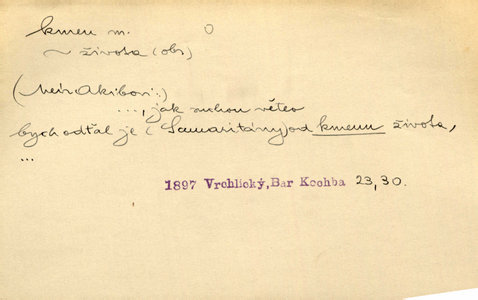 kmen m. O
~ života (obr)
(Meir Akibovi:)
..., jak suchou větev
bych odťal je (Samaritány) od kmenu života,
...
1897 Vrchlický, Bar Kochba 23, 30.